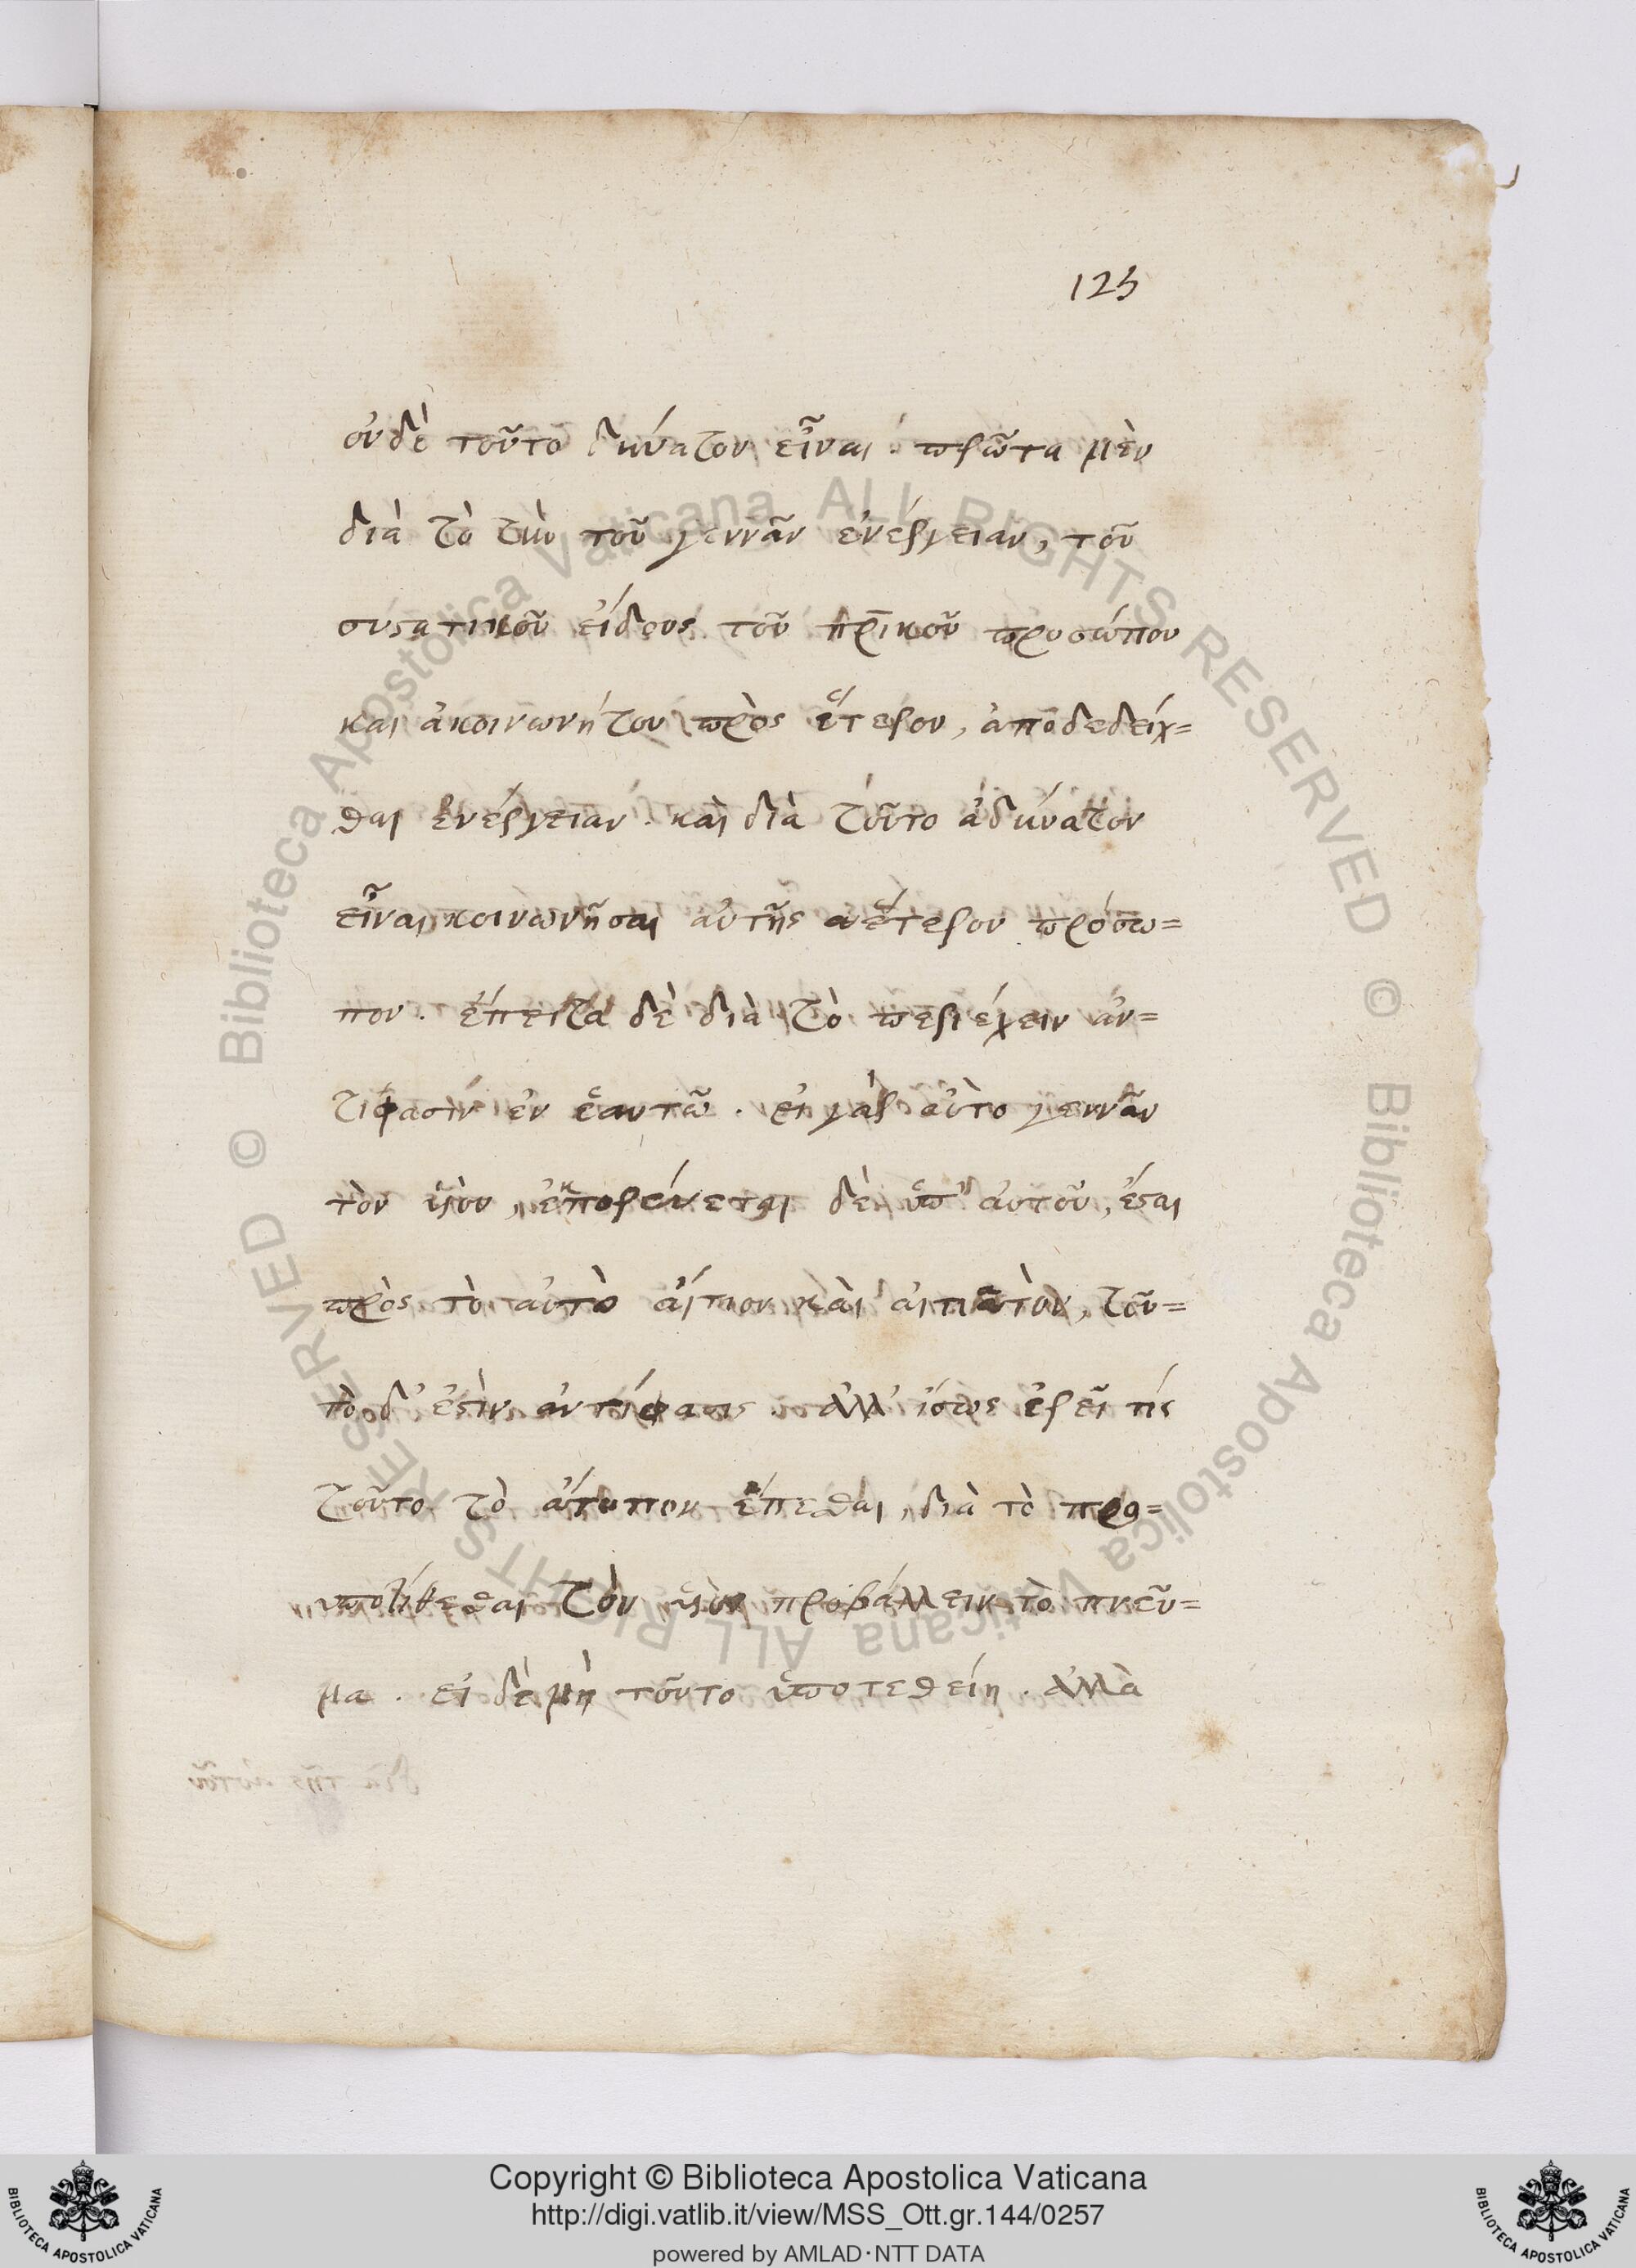 123
οὐδὲ τοῦτο δυνατὸν εἶναι · πρῶτα μὲν
διὰ τὸ τὴν τοῦ γεννᾶν ἐνέργειαν, τοῦ
συστατικοῦ εἴδους τοῦ πρ̅ικοῦ προσώπου
καὶ ἀκοινωνήτου πρὸς ἕτερον, ἀποδεδείχ=
θαι ἐνέργειαν · καὶ διὰ τοῦτο ἀδύνατον
εἶναι κοινωνῆσαι αὐτῆς ἕτερον πρόσω=
πον · ἔπειτα δὲ διὰ τὸ περιέχειν ἀν=
τίφασιν ἐν ἑαυτῶ · εἰ γὰρ αὐτὸ γεννᾶν
τὸν υἱὸν, ἐκπορεύεται δὲ ὑπ' αὐτοῦ, ἔσται
πρὸς τὸ αὐτὸ αἴτιον καὶ αἰτιατὸν, τοῦ=
το δ' ἐστὶν ἀντίφασις · ἀλλ' ἴσως ἐρεῖ τίς
τοῦτο τὸ ἄτοπον ἕπεσθαι, διὰ τὸ προ=
υποτίθεσθαι τὸν υἱὸν προβάλλειν τὸ πνεῦ=
μα · εἰ δὲ μὴ τοῦτο ὑποτεθείη · ἀλλὰ
Copyright © Biblioteca Apostolica Vaticana
http://digi.vatlib.it/view/MSS_Ott.gr.144/0257
powered by AMLAD·NTT DATA
BIBLIOTECA APOSTOLICA VATICANA
BIBLIOTECA APOSTOLICA VATICANA
© Biblioteca Apostolica Vaticana ALL RIGHTS RESERVED
© Biblioteca Apostolica Vaticana ALL RIGHTS RESERVED